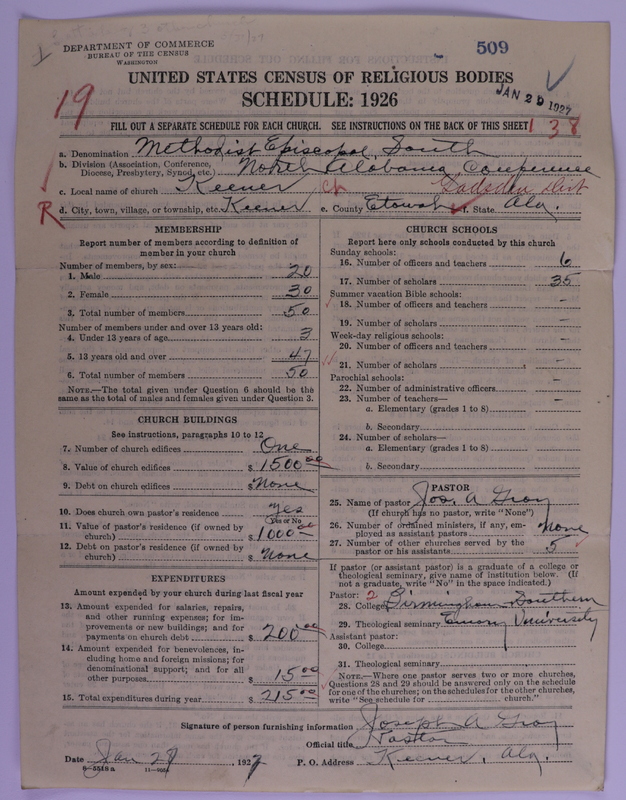 DEPARTMENT OF COMMERCE
BUREAU OF THE CENSUS
WASHINGTON
509
UNITED STATES CENSUS OF RELIGIOUS BODIES
SCHEDULE: 1926
JAN 29 1927
19
FILL OUT A SEPARATE SCHEDULE FOR EACH CHURCH. SEE INSTRUCTIONS ON THE BACK OF THIS SHEET
138
a. Denomination Methodist Episcopal, South
b. Division (Association, Conference, Diocese, Presbytery, Synod, etc.) North Alabama Conference
c. Local name of church Keener Ch Gadsden Dist
R
d. City, town, village, or township, etc. Keener e. County Etowah f. State Ala.
MEMBERSHIP
Report number of members according to definition of member in your church
Number of members, by sex:
1. Male 20
2. Female 30
3. Total number of members 50
Number of members under and over 13 years old:
4. Under 13 years of age 3
5. 13 years old and over 47
6. Total number of members 50
NOTE.—The total given under Question 6 should be the same as the total of males and females given under Question 3.
CHURCH BUILDINGS
See instructions, paragraphs 10 to 12
7. Number of church edifices One
8. Value of church edifices $ 1500.00
9. Debt on church edifices $ None
10. Does church own pastor's residence Yes
Yes or No
11. Value of pastor's residence (if owned by church) $ 1000.00
12. Debt on pastor's residence (if owned by church) $ None
EXPENDITURES
Amount expended by your church during last fiscal year
13. Amount expended for salaries, repairs, and other running expenses; for improvements or new buildings; and for payments on church debt $ 200.00
14. Amount expended for benevolences, including home and foreign missions; for denominational support; and for all other purposes $ 15.00
15. Total expenditures during year $ 215.00
CHURCH SCHOOLS
Report here only schools conducted by this church
Sunday schools:
16. Number of officers and teachers 6
17. Number of scholars 35
Summer vacation Bible schools:
18. Number of officers and teachers –
19. Number of scholars –
Week-day religious schools:
20. Number of officers and teachers –
21. Number of scholars –
Parochial schools:
22. Number of administrative officers –
23. Number of teachers—
a. Elementary (grades 1 to 8)
b. Secondary
24. Number of scholars—
a. Elementary (grades 1 to 8)
b. Secondary
PASTOR
25. Name of pastor Jos. A Gray
(If church has no pastor, write "None")
26. Number of ordained ministers, if any, employed as assistant pastors None
27. Number of other churches served by the pastor or his assistants 5
If pastor (or assistant pastor) is a graduate of a college or theological seminary, give name of institution below. (If not a graduate, write "No" in the space indicated.)
Pastor: 2
28. College Birmingham-Southern
29. Theological seminary Emory University
Assistant pastor:
30. College
31. Theological seminary
NOTE.—Where one pastor serves two or more churches, Questions 28 and 29 should be answered only on the schedule for one of the churches; on the schedules for the other churches, write "See schedule for ............ church."
Signature of person furnishing information Joseph A Gray
Official title Pastor
Date Jan 27, 1927 P. O. Address Keener, Ala.